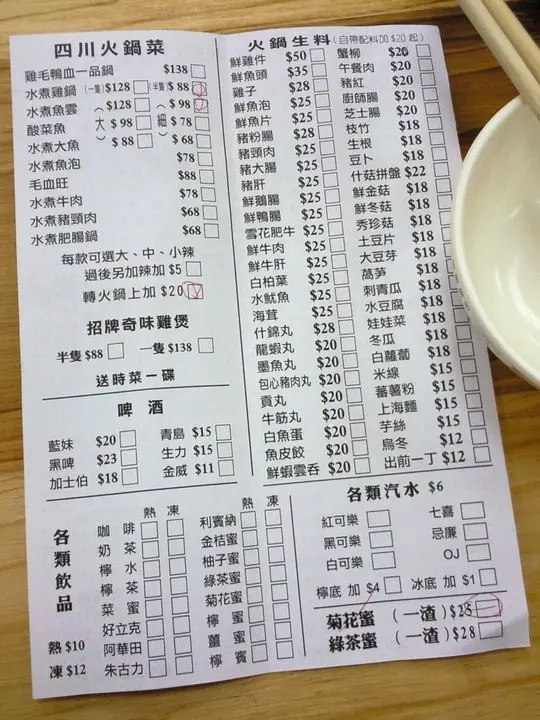 四川火鍋菜
雞毛鴨血一品鍋 $138
水煮雞鍋 (一隻) $128 (半隻) $88
水煮魚雲 (大) $128 (細) $98
酸菜魚 $98 $78
水煮大魚 $88 $68
水煮魚泡 $78
毛血旺 $88
水煮牛肉 $78
水煮豬頸肉 $68
水煮肥腸鍋 $68
每款可選大、中、小辣
過後另加辣加 $5
轉火鍋上加 $20
招牌奇味雞煲
半隻 $88 一隻 $138
送時菜一碟
啤酒
藍妹 $20 青島 $15
黑啤 $23 生力 $15
加士伯 $18 金威 $11
各類飲品
熱 $10
凍 $12
熱 凍
咖啡
奶茶
檸水
檸茶
菜蜜
好立克
阿華田
朱古力
熱 凍
利賓納
金桔蜜
柚子蜜
綠茶蜜
菊花蜜
檸蜜
薑蜜
檸賓
火鍋生料 (自帶配料加 $20 起)
鮮雞件 $50
鮮魚頭 $35
雞子 $28
鮮魚泡 $25
鮮魚片 $25
豬粉腸 $28
豬頸肉 $25
豬大腸 $25
豬肝 $25
鮮鵝腸 $25
鮮鴨腸 $25
雪花肥牛 $25
鮮牛肉 $25
鮮牛肝 $25
白柏葉 $25
水魷魚 $25
海茸 $25
什錦丸 $28
龍蝦丸 $20
墨魚丸 $20
包心豬肉丸 $20
貢丸 $20
牛筋丸 $20
白魚蛋 $20
魚皮餃 $20
鮮蝦雲吞 $20
蟹柳 $20
午餐肉 $20
豬紅 $20
廚師腸 $20
芝士腸 $20
枝竹 $18
生根 $18
豆卜 $18
什菇拼盤 $22
鮮金菇 $18
鮮冬菇 $18
秀珍菇 $18
土豆片 $18
大豆芽 $18
萵笋 $18
刺青瓜 $18
水豆腐 $18
娃娃菜 $18
冬瓜 $18
白蘿蔔 $18
米線 $15
蕃薯粉 $15
上海麵 $15
芋絲 $15
烏冬 $12
出前一丁 $12
各類汽水 $6
紅可樂 七喜
黑可樂 忌廉
白可樂 OJ
檸底加 $4 冰底加 $1
菊花蜜 (一渣) $28
綠茶蜜 (一渣) $28